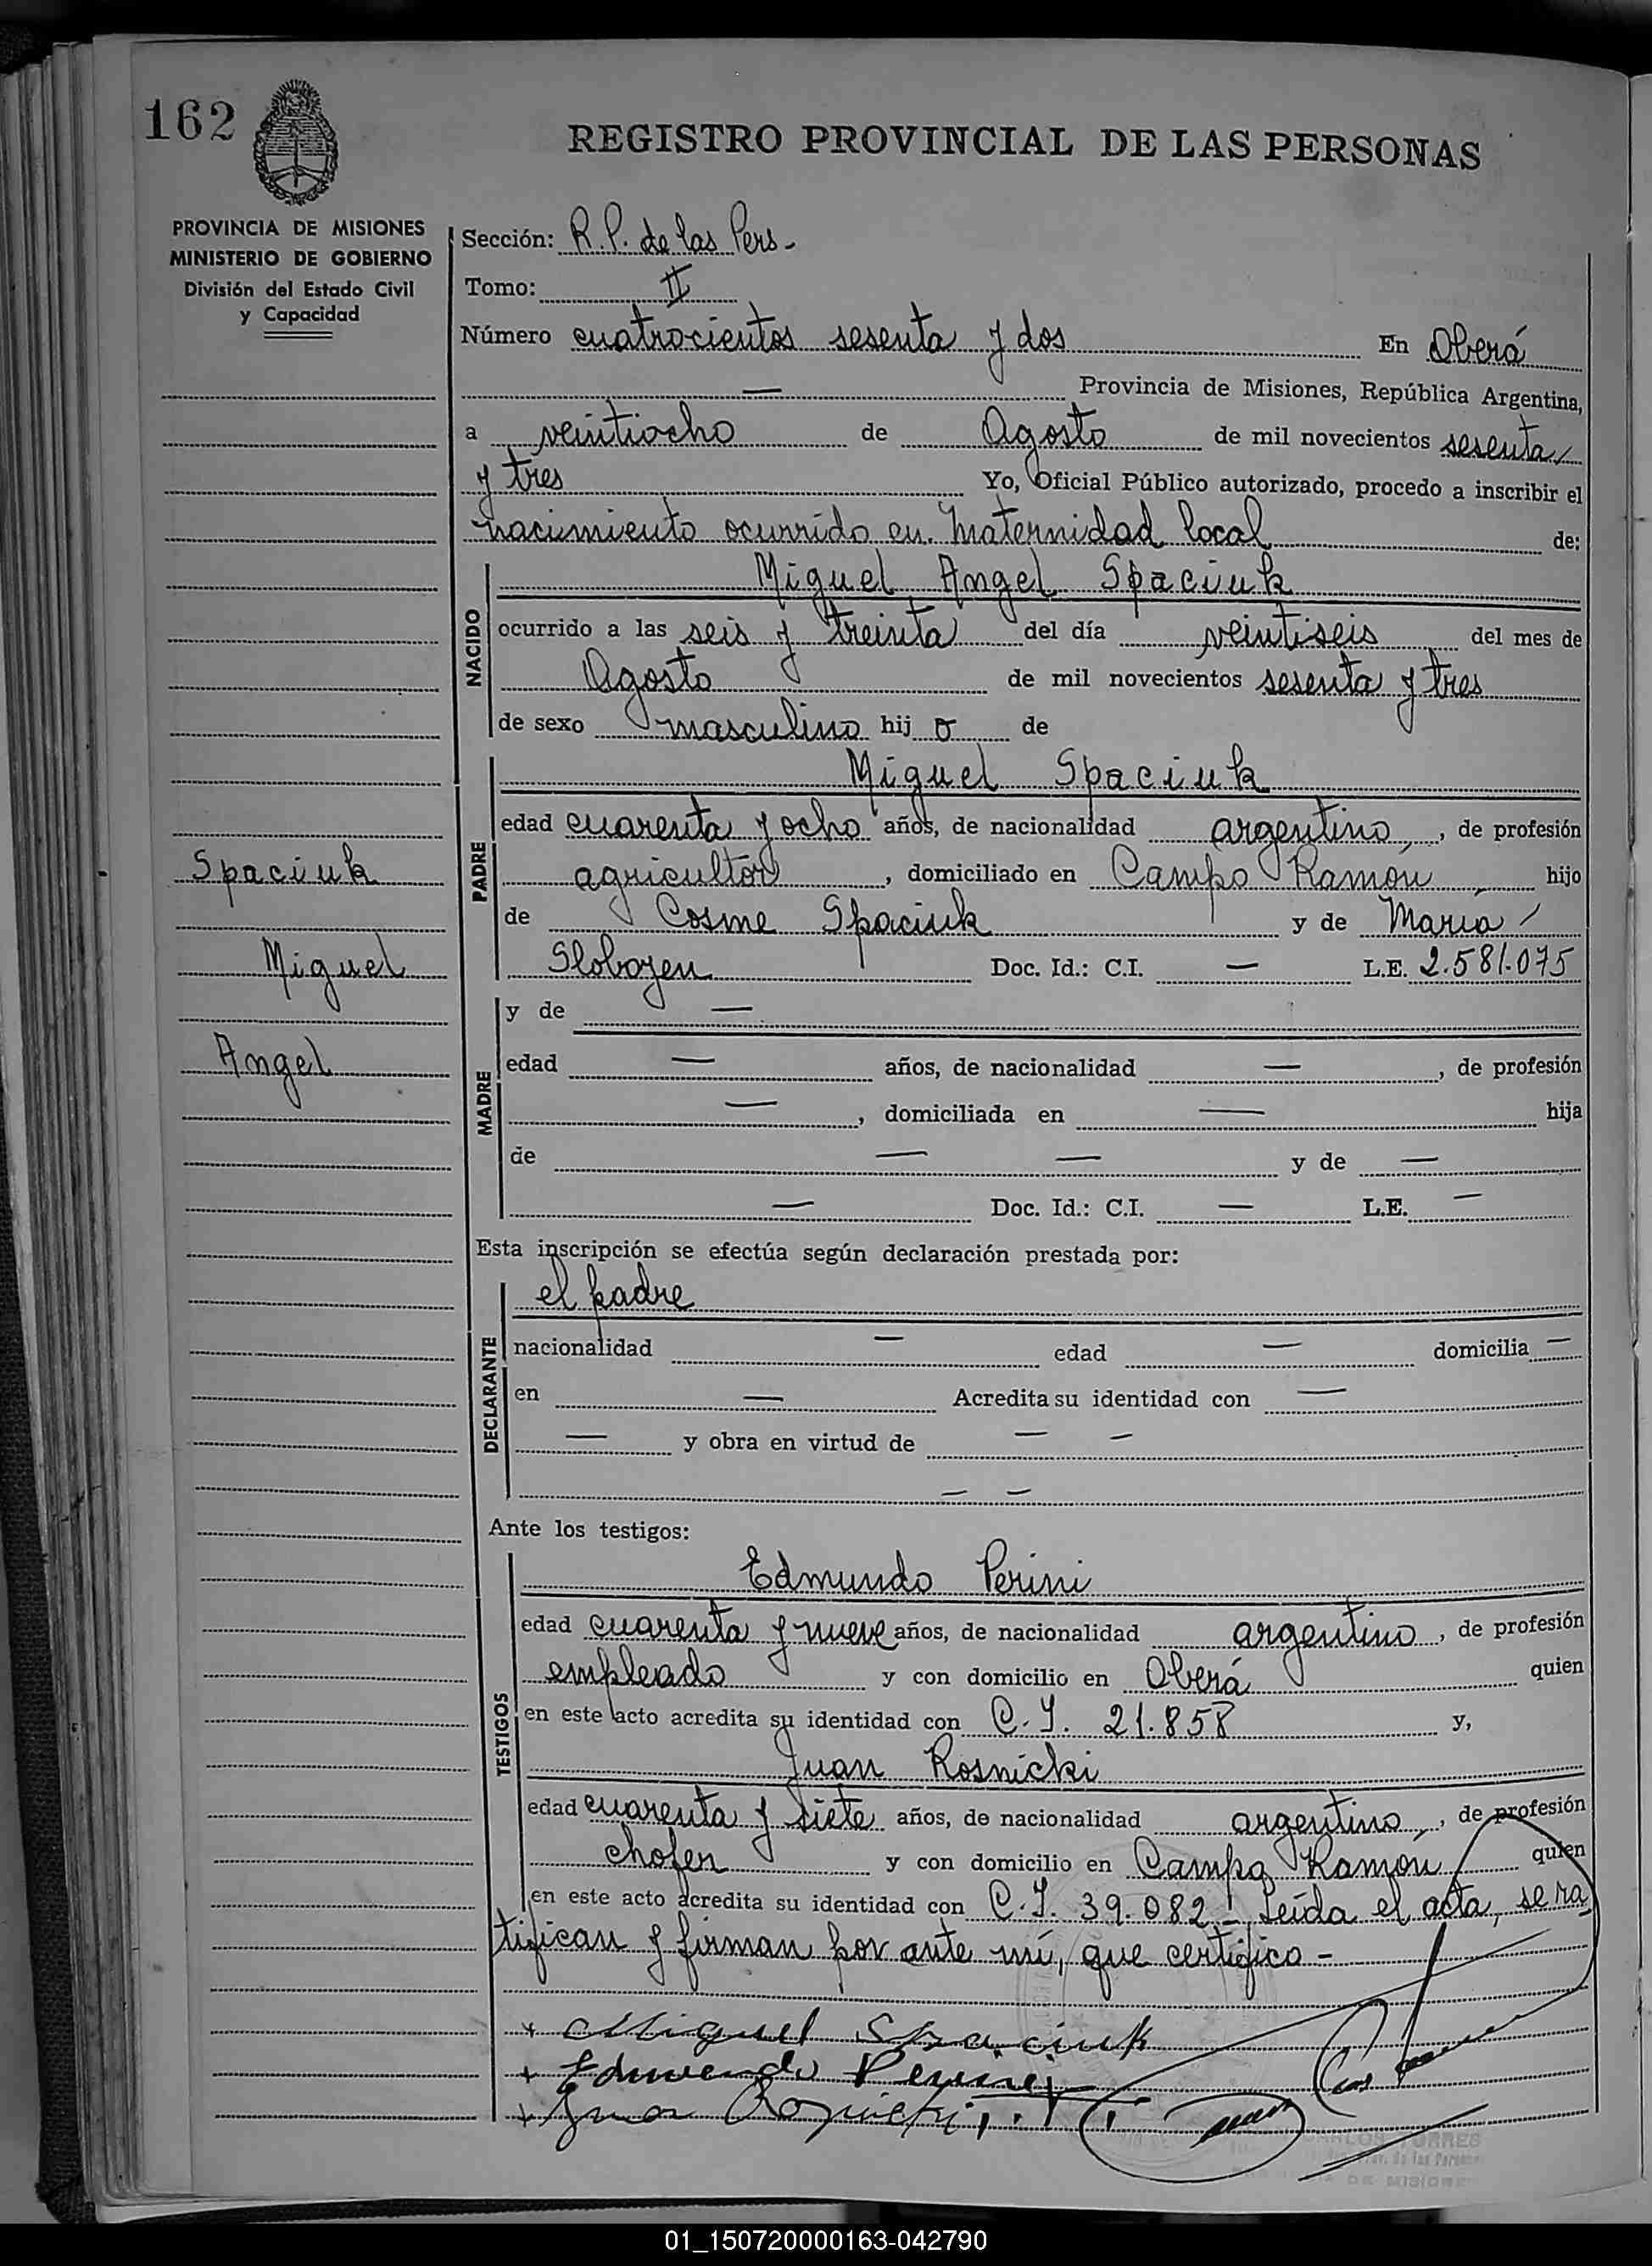 162
REGISTRO PROVINCIAL DE LAS PERSONAS
PROVINCIA DE MISIONES
MINISTERIO DE GOBIERNO
División del Estado Civil
y Capacidad
Sección: R. P. de las Pers -
Tomo: II
Número cuatrocientos sesenta y dos En Oberá
— Provincia de Misiones, República Argentina,
a veintiocho de Agosto de mil novecientos sesenta
y tres Yo, Oficial Público autorizado, procedo a inscribir el
nacimiento ocurrido en Maternidad local de:
NACIDO
Miguel Angel Spaciuk
ocurrido a las seis y treinta del día veintiseis del mes de
Agosto de mil novecientos sesenta y tres
de sexo masculino hij o de
PADRE
Miguel Spaciuk
edad cuarenta y ocho años, de nacionalidad argentino, de profesión
agricultor, domiciliado en Campo Ramón hijo
de Cosme Spaciuk y de María
Slobozen Doc. Id.: C.I. — L.E. 2.581.075
Spaciuk
Miguel
Angel
MADRE
y de —
edad — años, de nacionalidad —, de profesión
—, domiciliada en — hija
de — — y de —
— Doc. Id.: C.I. — L.E. —
Esta inscripción se efectúa según declaración prestada por:
DECLARANTE
el padre
nacionalidad — edad — domicilia —
en — Acredita su identidad con —
— y obra en virtud de — —
— —
Ante los testigos:
TESTIGOS
Edmundo Perini
edad cuarenta y nueve años, de nacionalidad argentino, de profesión
empleado y con domicilio en Oberá quien
en este acto acredita su identidad con C. I. 21.858 y,
Juan Rosnicki
edad cuarenta y siete años, de nacionalidad argentino, de profesión
chofer y con domicilio en Campo Ramón quien
en este acto acredita su identidad con C. I. 39.082.- Leída el acta, se ra
tifican y firman por ante mí, que certifico -
+ Miguel Spaciuk
+ Edmundo Perini
+ Juan Rosnicki
CARLOS TORRES
01_150720000163-042790